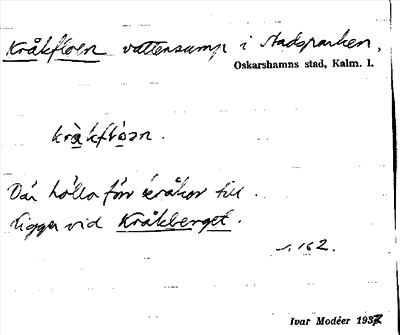 Kråkfloen vattensamp i Stadsparken,
Oskarshamns stad, Kalm. l.
kràkflóən.
Där hålla för kråkor till.
Ligger vid Kråkberget.
s. 162.
Ivar Modéer 1937